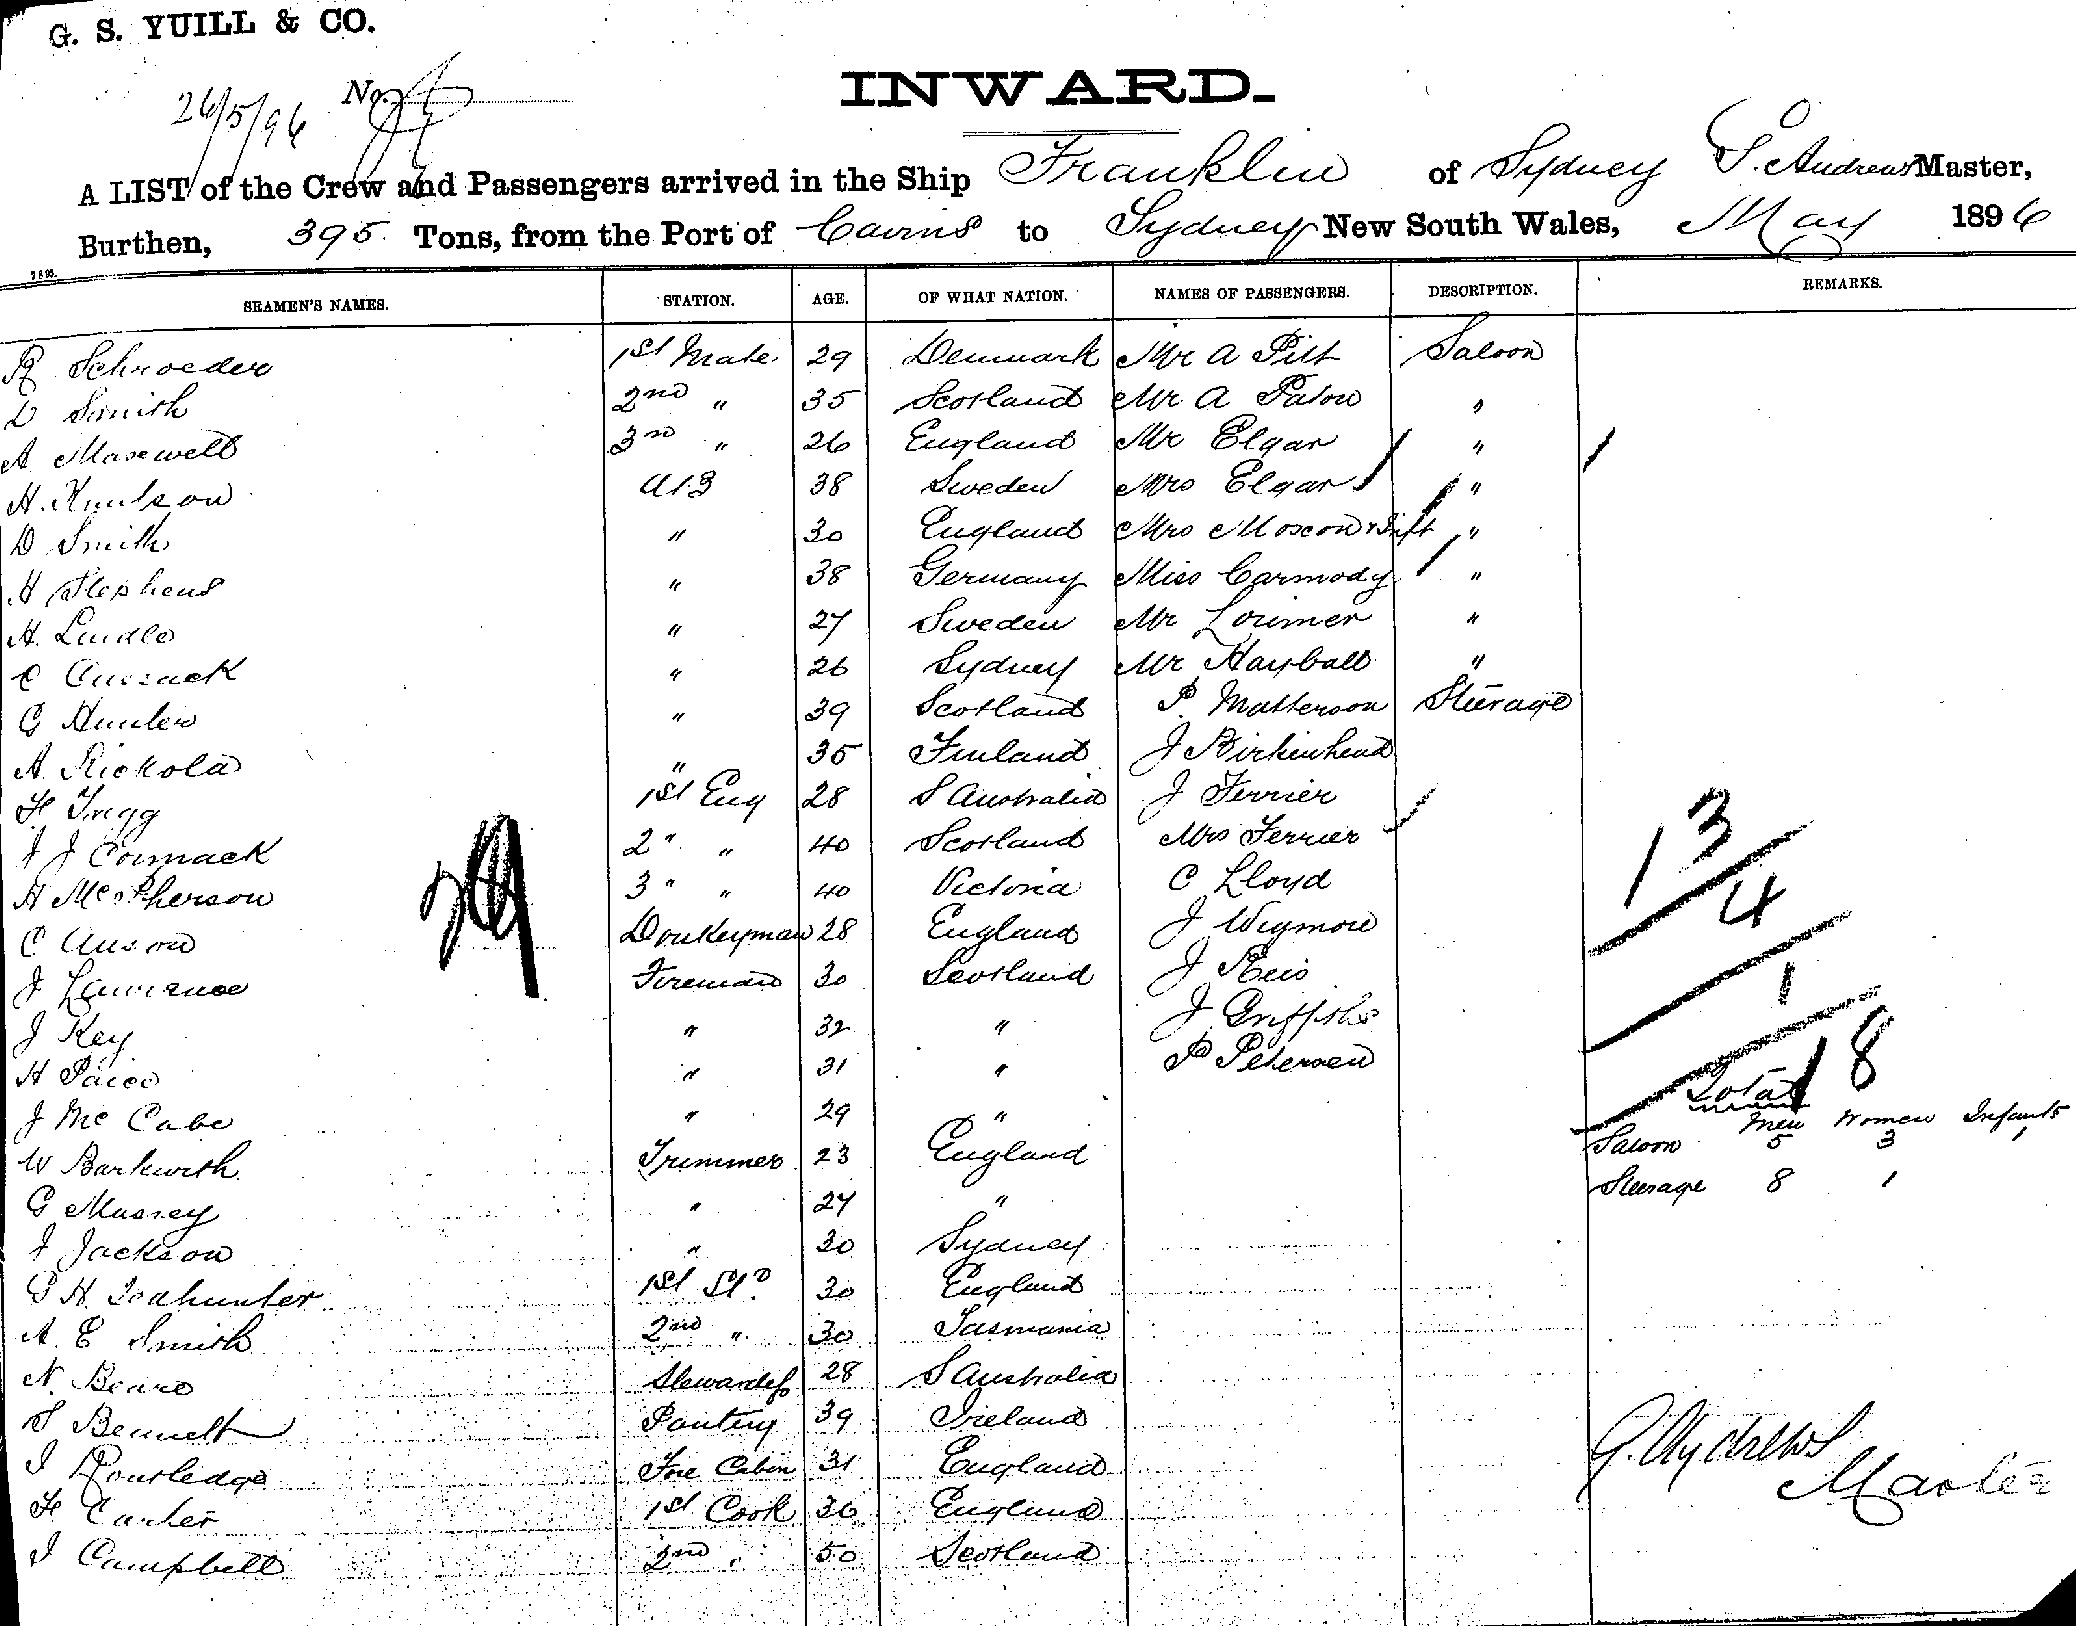 G. S. YUILL & CO.
26/5/96 No.
INWARD.
A LIST of the Crew and Passengers arrived in the Ship Franklin of Sydney G. Andrews Master,
Burthen, 395 Tons, from the Port of Cairns to Sydney New South Wales, May 1896
SEAMEN'S NAMES. STATION. AGE. OF WHAT NATION. NAMES OF PASSENGERS. DESCRIPTION. REMARKS.
R Schroeder 1st Mate 29 Denmark Mr A Pitt Saloon
D Smith 2nd " 35 Scotland Mr A Paton "
A Maxwell 3rd " 26 England Mr Elgar "
H. Knutson AB 38 Sweden Mrs Elgar "
D Smith " 30 England Mrs Moxon & Inft "
H Stephens " 38 Germany Miss Carmody "
A. Lindle " 27 Sweden Mr Lorimer "
C Cussack " 26 Sydney Mr Hayball "
G Hunter " 39 Scotland P. Matterson Steerage
A. Rickola " 35 Finland J Birkinhead
H Tregg 1st Eng 28 S Australia J Ferrier
J J Cormack 2" " 40 Scotland Mrs Ferrier
H McPherson 3" " 40 Victoria C Lloyd
C Anson Donkeyman 28 England J Wigmore
J Lawrence Fireman 30 Scotland J Reis
J Key " 32 " J Griffiths
H Paice " 31 " P Petersen
J McCabe " 29 "
W Barkwith Trimmer 23 England
G Massey " 27 "
J Jackson " 30 Sydney
G H. Todhunter 1st Std 30 England
A. E Smith 2nd " 30 Tasmania
N. Beare Stewardess 28 S Australia
S Bennett Pantry 39 Ireland
J Routledge Fore Cabin 31 England
H Carter 1st Cook 36 England
J Campbell 2nd " 50 Scotland
29
13
4
1
Total 18
Men Women Infants
Saloon 5 3 1
Steerage 8 1
G. Andrews
Master